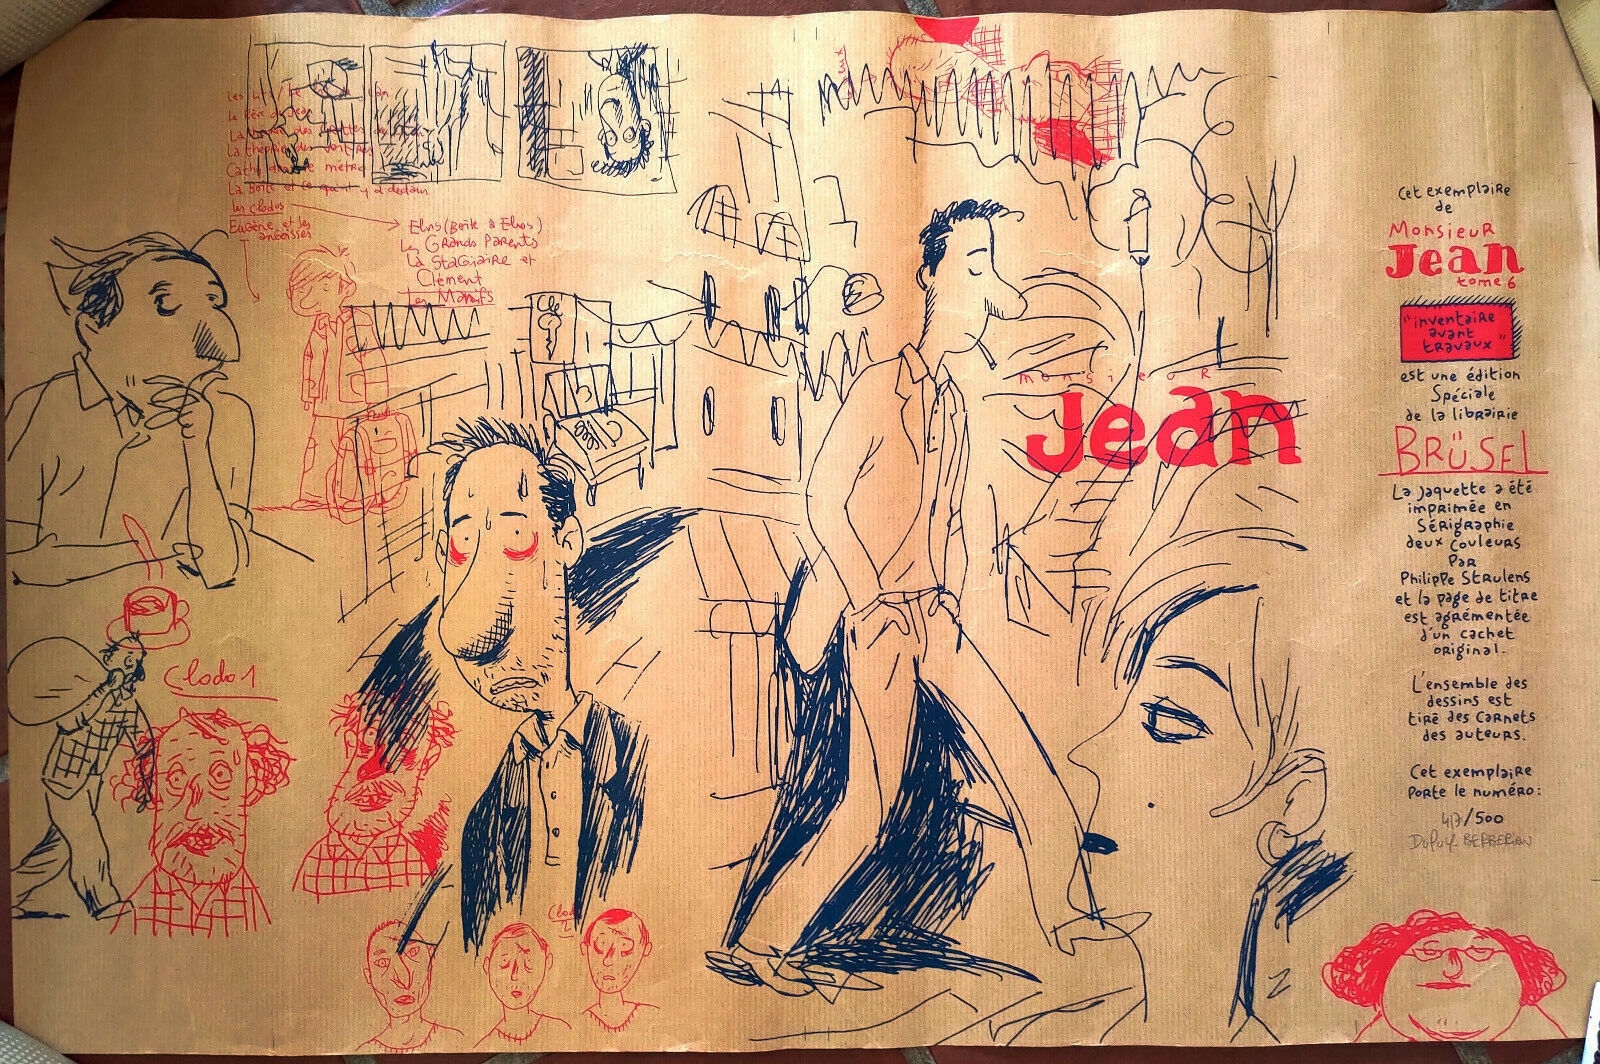 Le Rêve de Jean
La théorie des
Cathy
La Boîte et ce qu'il y a dedans
les clodos
Eugène et ses
angoisses
Elvis (Boîte à Elvis)
Les Grands Parents
La Stagiaire et
Clément
Les Manifs
Clodo 1
Clodo
2
monsieur
Jean
Cet exemplaire
de
Monsieur
Jean
tome 6
"inventaire
avant
travaux"
est une édition
Spéciale
de la librairie
BRÜSEL
La jaquette a été
imprimée en
Sérigraphie
deux couleurs
Par
Philippe Strulens
et la page de titre
est agrémentée
d'un cachet
original.
L'ensemble des
dessins est
tiré des carnets
des auteurs.
Cet exemplaire
Porte le numéro:
417/500
Dupuy BERBERIAN